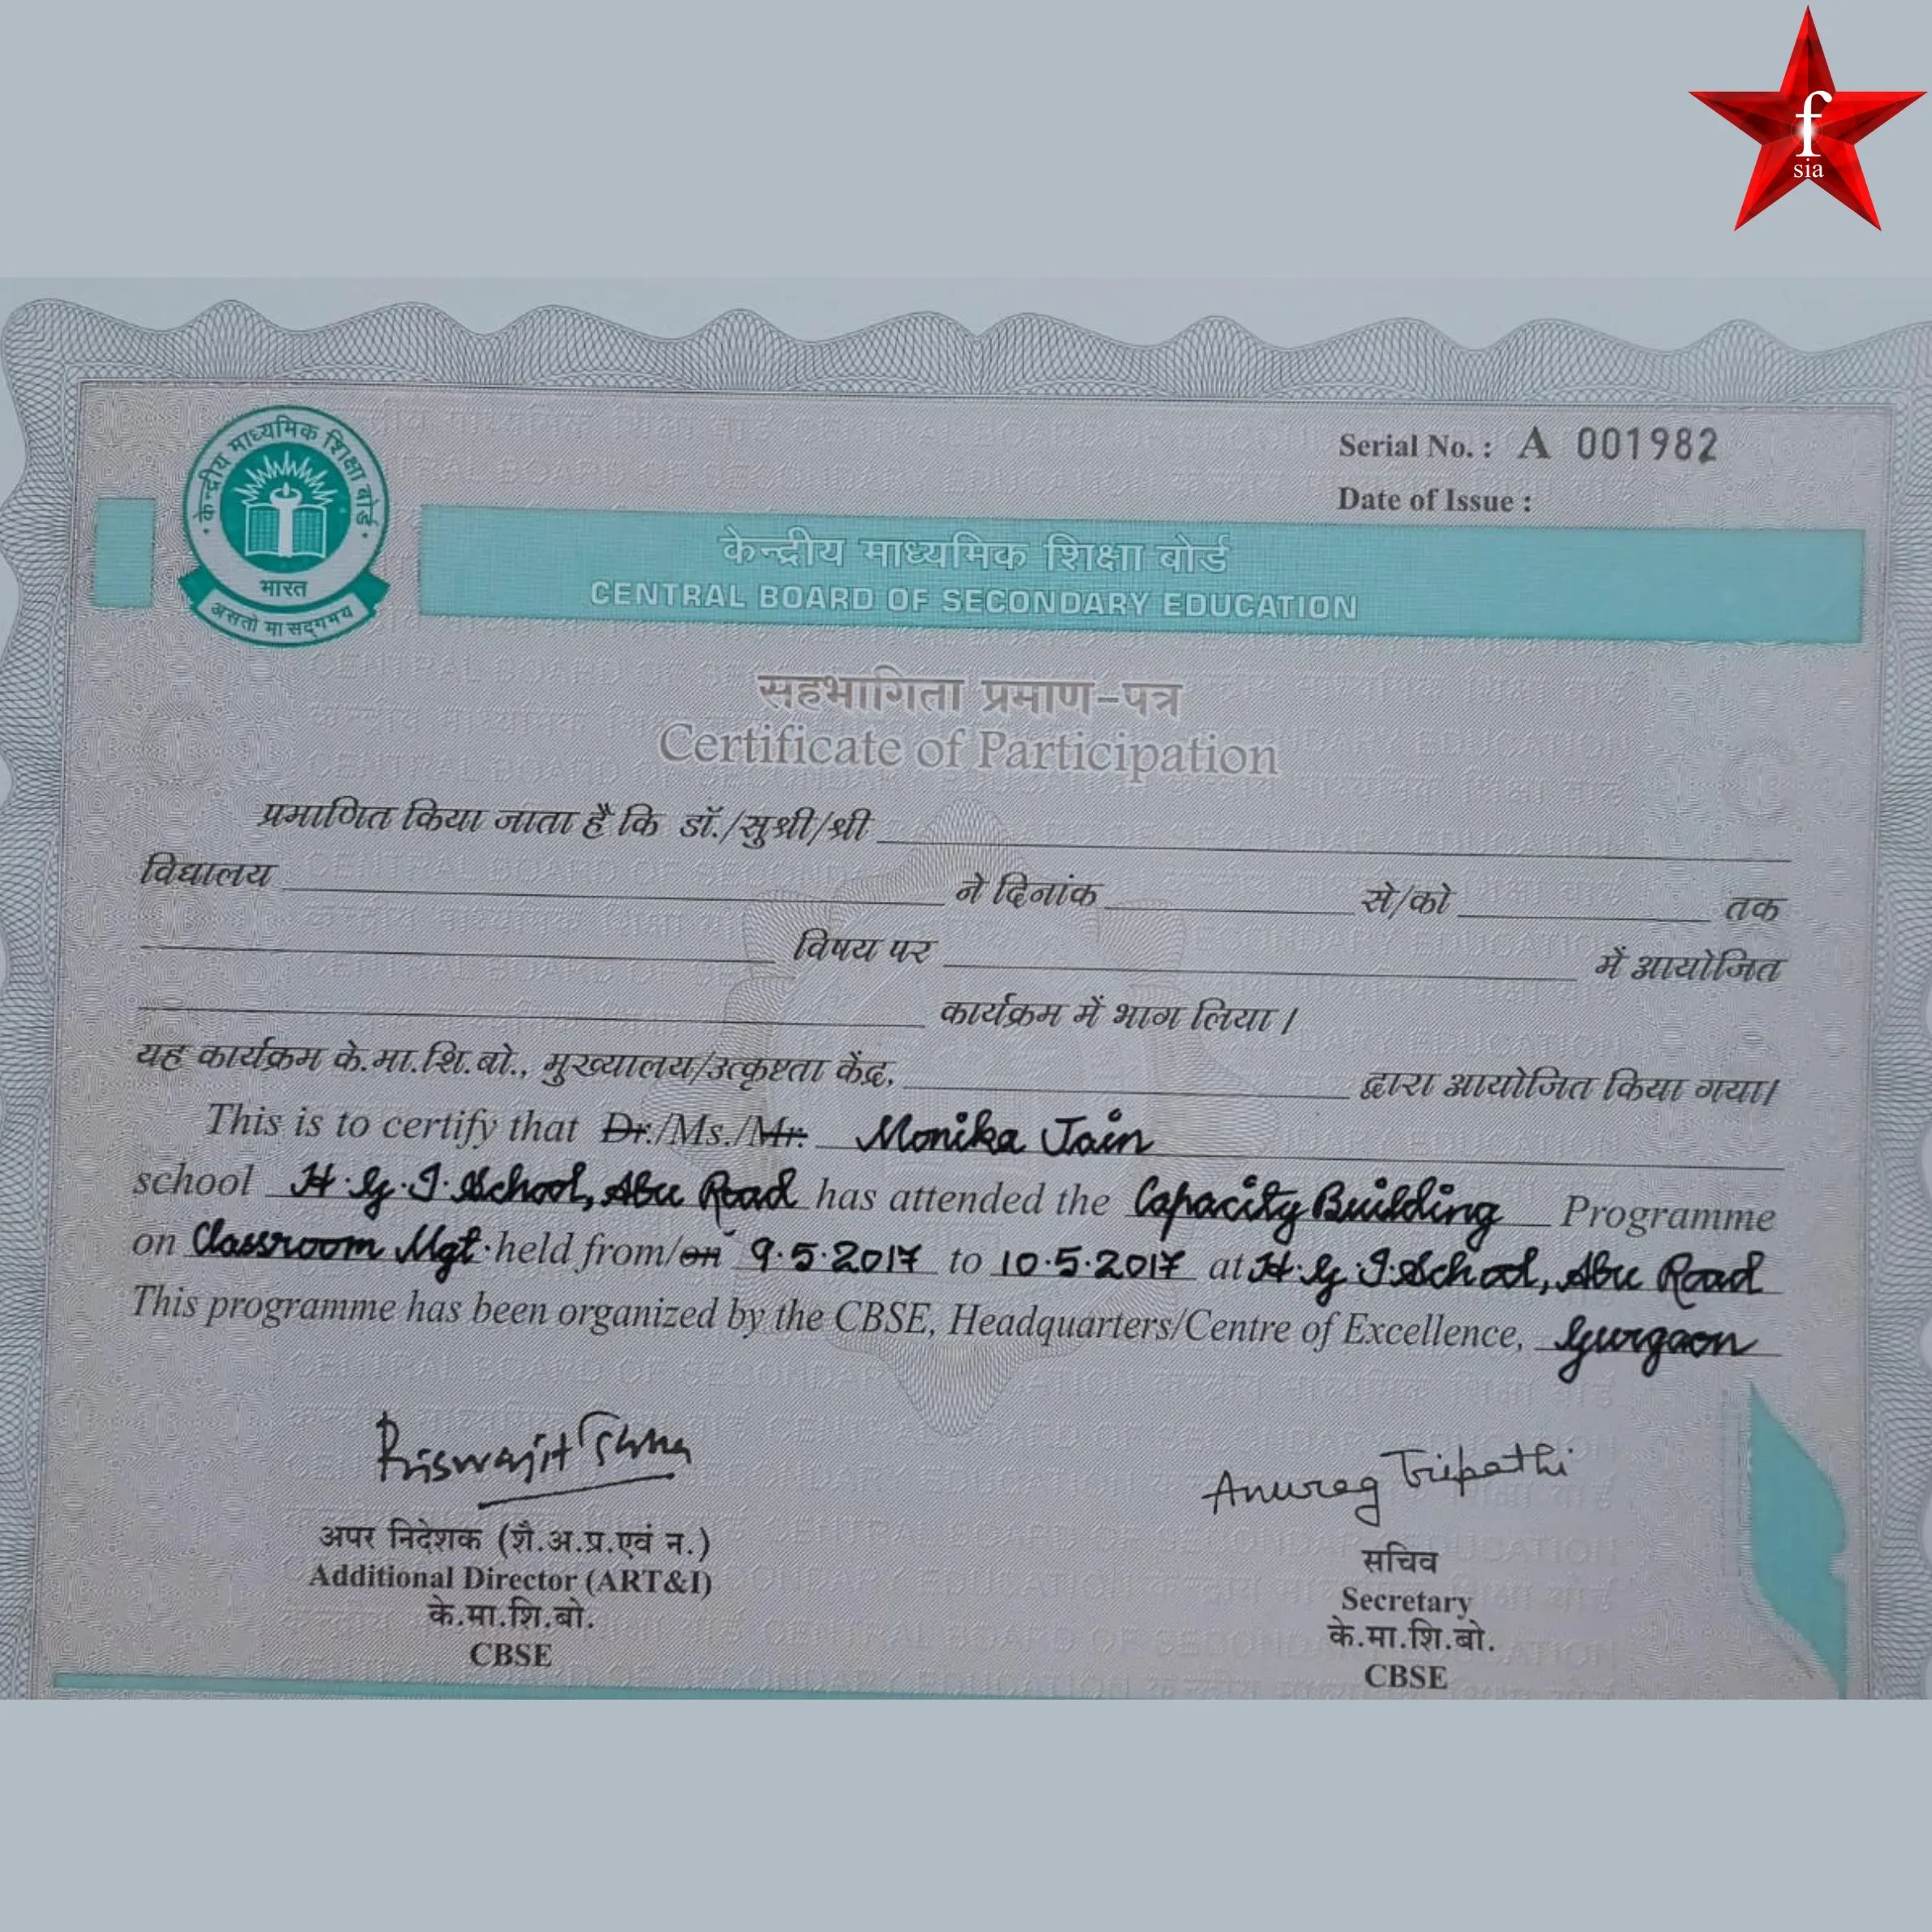 f
sia
Serial No. : A 001982
Date of Issue :
केन्द्रीय माध्यमिक शिक्षा बोर्ड
भारत
असतो मा सद्गमय
केन्द्रीय माध्यमिक शिक्षा बोर्ड
CENTRAL BOARD OF SECONDARY EDUCATION
सहभागिता प्रमाण-पत्र
Certificate of Participation
प्रमाणित किया जाता है कि डॉ./सुश्री/श्री
विद्यालय ने दिनांक से/को तक
विषय पर में आयोजित
कार्यक्रम में भाग लिया।
यह कार्यक्रम के.मा.शि.बो., मुख्यालय/उत्कृष्टता केंद्र, द्वारा आयोजित किया गया।
This is to certify that Dr./Ms./Mr. Monika Jain
school H.G.I.School, Abu Road has attended the Capacity Building Programme
on Classroom Mgt. held from/on 9.5.2017 to 10.5.2017 at H.G.I.School, Abu Road
This programme has been organized by the CBSE, Headquarters/Centre of Excellence, Gurgaon
Anurag Tripathi
अपर निदेशक (शै.अ.प्र.एवं न.)
Additional Director (ART&I)
के.मा.शि.बो.
CBSE
सचिव
Secretary
के.मा.शि.बो.
CBSE